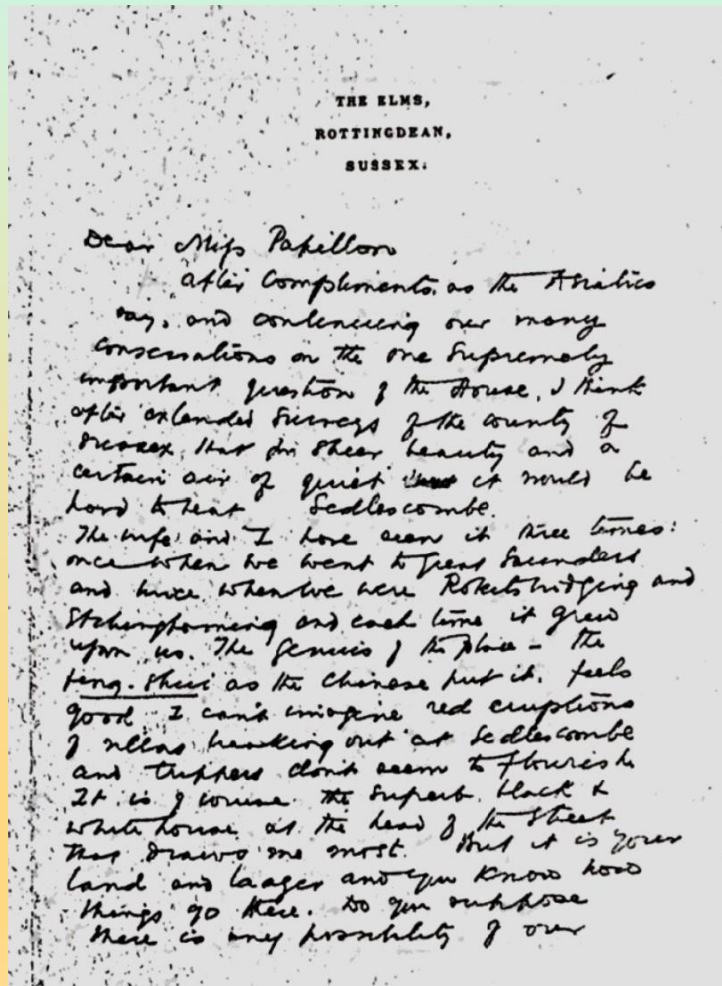 THE ELMS,
ROTTINGDEAN,
SUSSEX.
Dear Miss Papillon
after compliments, as the Asiatics
say, and continuing our many
conversations on the one supremely
important question of the House, I think
after extended surveys of the county of
Sussex that for sheer beauty and a
certain air of quiet it would be
hard to beat Sedlescombe.
The wife and I have seen it three times:
once when we went to Great Saunders
and twice when we were Robertsbridging and
Etchinghaming and each time it grew
upon us. The genius of the place – the
feng-shui as the Chinese put it, feels
good. I can't imagine red eruptions
of villas breaking out at Sedlescombe
and trippers don't seem to flourish
It is of course the superb black &
white house at the head of the Street
that draws me most. But it is your
land and laager and you know how
things go there. Do you suppose
there is any possibility of our